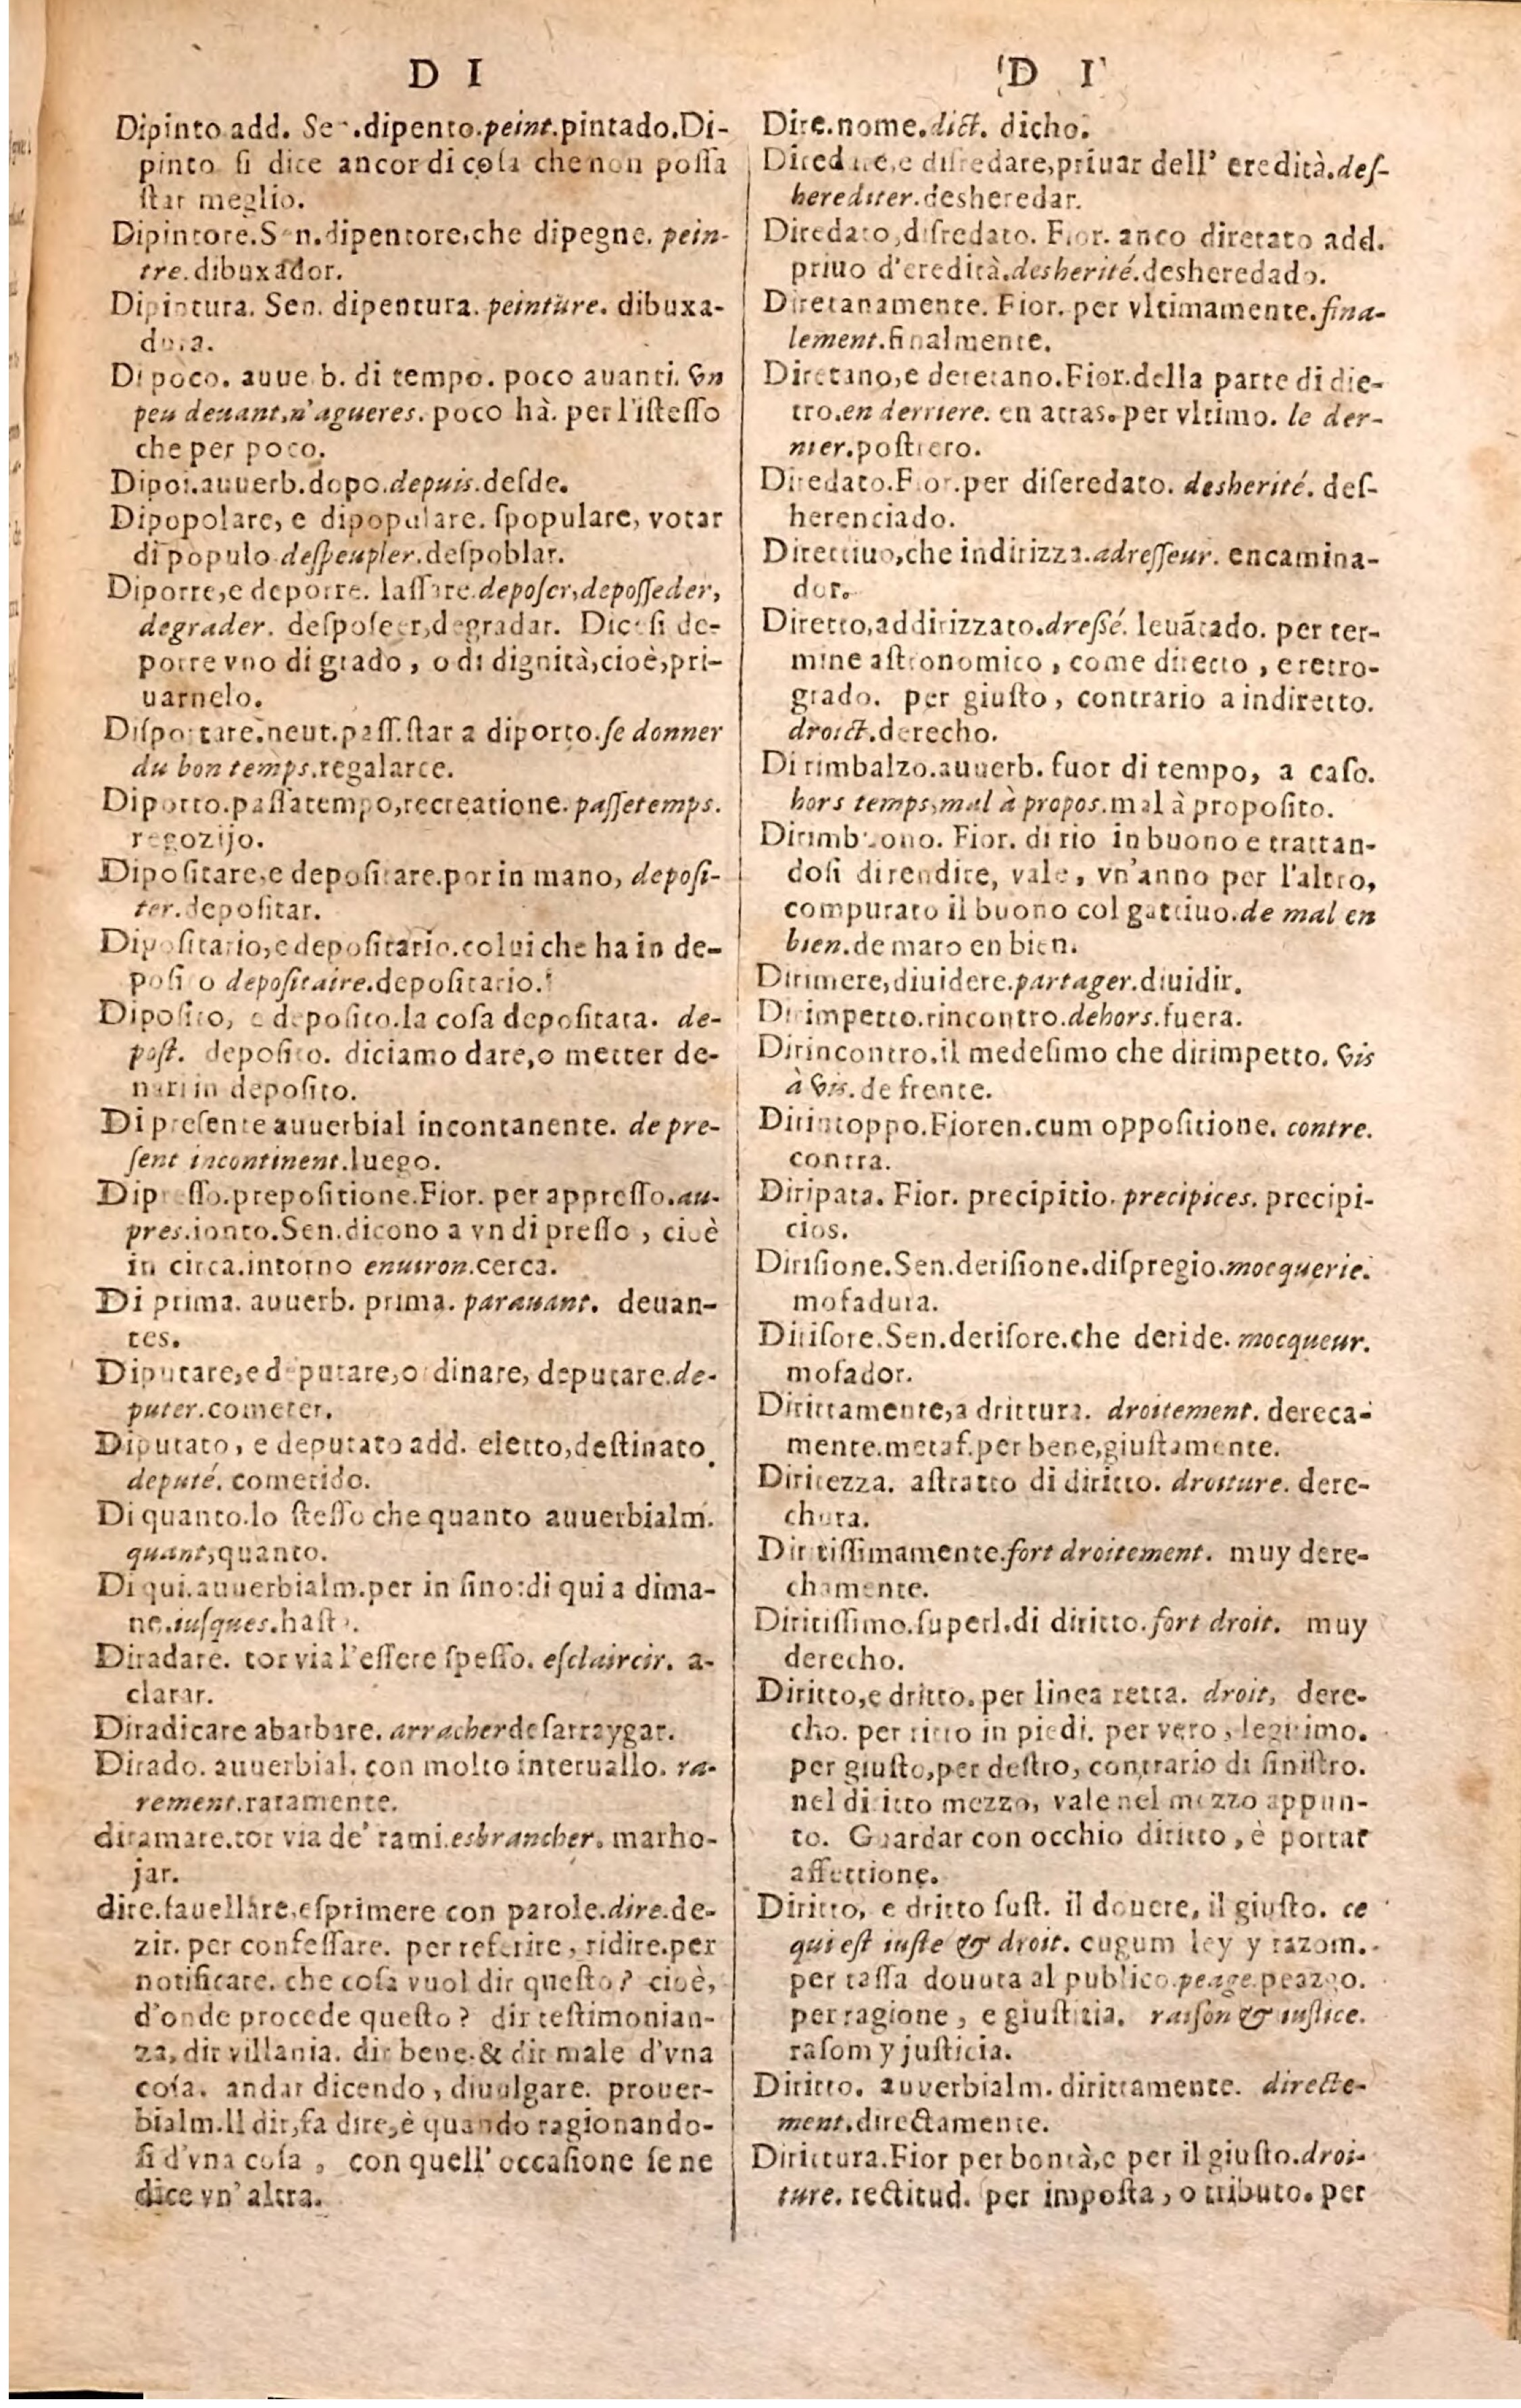 D I
Dipinto add. Sen.dipento.peint.pintado.Di-
pinto si dice ancor di cosa che non possa
star meglio.
Dipintore.Sen.dipentore,che dipegne. pein-
tre.dibuxador.
Dipintura. Sen. dipentura. peinture. dibuxa-
dura.
Di poco. auuerb. di tempo. poco auanti. vn
peu deuant,n'agueres. poco hà. per l'istesso
che per poco.
Dipoi.auuerb.dopo.depuis.desde.
Dipopolare, e dipopulare. spopulare, votar
di populo.despeupler.despoblar.
Diporre,e deporre. lassare.deposer,deposseder,
degrader. desposeer,degradar. Dicesi de-
porre vno di grado, o di dignità,cioè,pri-
uarnelo.
Disportare.neut.pass.star a diporto.se donner
du bon temps.regalarce.
Diporto.passatempo,recreatione.passetemps.
regozijo.
Dipositare,e depositare.por in mano, deposi-
ter.depositar.
Dipositario,e depositario.colui che ha in de-
posito depositaire.depositario.
Diposito, e deposito.la cosa depositata. de-
post. deposito. diciamo dare,o metter de-
nari in deposito.
Di presente auuerbial incontanente. de pre-
sent incontinent.luego.
Dipresso.prepositione.Fior. per appresso.au-
pres.ionto.Sen.dicono a vn di presso, cioè
in circa.intorno enuiron.cerca.
Di prima. auuerb. prima. parauant. deuan-
tes.
Diputare,e deputare,ordinare, deputare.de-
puter.cometer.
Diputato, e deputato add. eletto,destinato.
deputé. cometido.
Di quanto.lo stesso che quanto auuerbialm.
quant,quanto.
Di qui.auuerbialm.per in sino:di qui a dima-
ne.iusques.hasta.
Diradare. tor via l'essere spesso. esclaircir. a-
clarar.
Diradicare abarbare. arracher desarraygar.
Dirado. auuerbial. con molto interuallo. ra-
rement.raramente.
diramare.tor via de' rami.esbrancher. marho-
jar.
dire.fauellare,esprimere con parole.dire.de-
zir. per confessare. per referire, ridire.per
notificare. che cosa vuol dir questo? cioè,
d'onde procede questo? dir testimonian-
za, dir villania. dir bene.& dir male d'vna
cosa. andar dicendo, diuulgare. prouer-
bialm.Il dir,fa dire,è quando ragionando-
si d'vna cosa, con quell' occasione se ne
dice vn' altra.
D I
Dire.nome.dict. dicho.
Diredare,e disredare,priuar dell' eredità.des-
herediter.desheredar.
Diredato,disredato. Fior. anco diretato add.
priuo d'eredità.desherité.desheredado.
Diretanamente. Fior. per vltimamente.fina-
lement.finalmente.
Diretano,e deretano.Fior.della parte di die-
tro.en derriere. en atras.per vltimo. le der-
nier.postrero.
Diredato.Fior.per diseredato. desherité. des-
herenciado.
Direttiuo,che indirizza.adresseur. encamina-
dor.
Diretto,addirizzato.dressé. leuãtado. per ter-
mine astronomico, come diretto, e retro-
grado. per giusto, contrario a indiretto.
droict.derecho.
Di rimbalzo.auuerb. fuor di tempo, a caso.
hors temps,mal à propos.mal à proposito.
Dirimbuono. Fior. di rio in buono e trattan-
dosi di rendite, vale, vn'anno per l'altro,
compurato il buono col gattiuo.de mal en
bien.de maro en bien.
Dirimere,diuidere.partager.diuidir.
Dirimpetto.rincontro.dehors.fuera.
Dirincontro.il medesimo che dirimpetto. vis
à vis.de frente.
Dirintoppo.Fioren.cum oppositione. contre.
contra.
Diripata. Fior. precipitio. precipices. precipi-
cios.
Dirisione.Sen.derisione.dispregio.mocquerie.
mofadura.
Dirisore.Sen.derisore.che deride. mocqueur.
mofador.
Dirittamente,a drittura. droitement. dereca-
mente.metaf.per bene,giustamente.
Diritezza. astratto di diritto. droiture. dere-
chura.
Dirittissimamente.fort droitement. muy dere-
chamente.
Diritissimo.superl.di diritto.fort droit. muy
derecho.
Diritto,e dritto.per linea retta. droit, dere-
cho. per ritto in piedi. per vero, legitimo.
per giusto,per destro, contrario di sinistro.
nel diritto mezzo, vale nel mezzo appun-
to. Guardar con occhio diritto, è portar
affettione.
Diritto, e dritto sust. il douere, il giusto. ce
qui est iuste & droit. cugum ley y razom.
per tassa douuta al publico.peage.peazgo.
per ragione, e giustitia. raison & iustice.
rasom y justicia.
Diritto. auuerbialm. dirittamente. directe-
ment.directamente.
Dirittura.Fior per bontà,e per il giusto.droi-
ture. rectitud. per imposta, o tributo. per